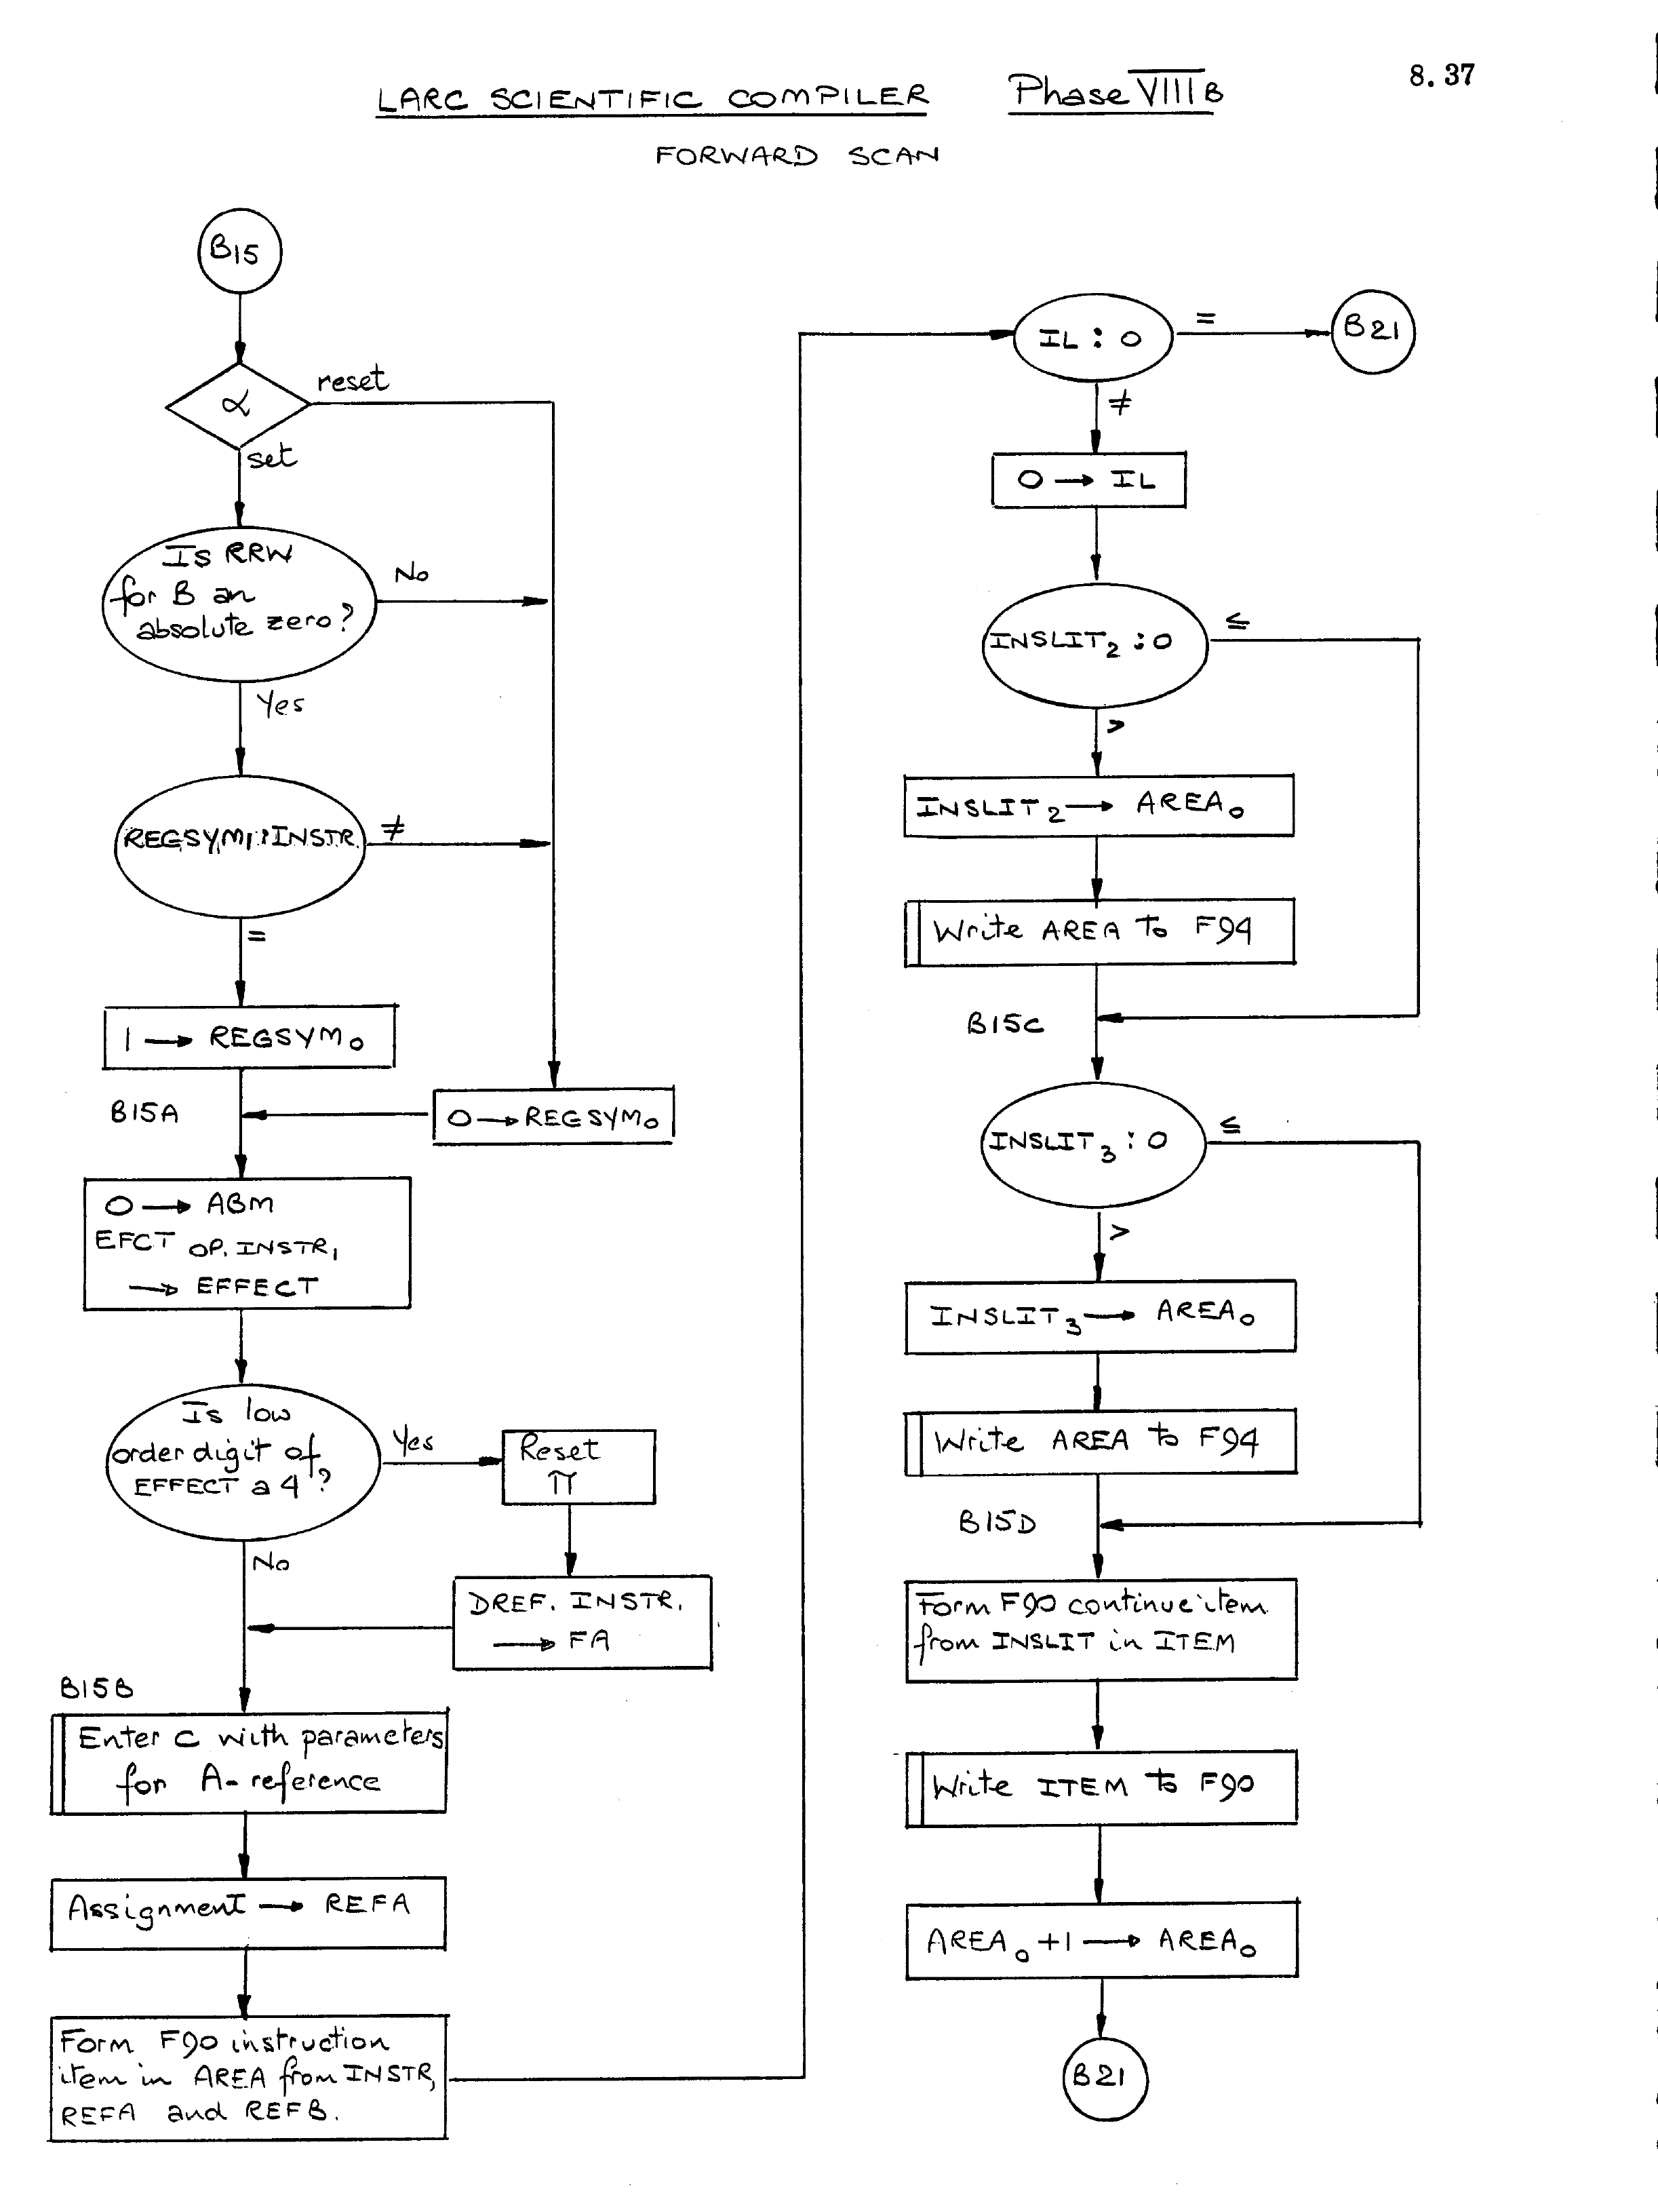 8.37
LARC SCIENTIFIC COMPILER Phase VIII B
FORWARD SCAN
B15
α
reset
set
Is RRW
for B an
absolute zero?
No
Yes
REGSYM₁:INSTR
≠
=
1 → REGSYM₀
B15A
0 → REGSYM₀
0 → ABM
EFCT OP. INSTR,
→ EFFECT
Is low
order digit of
EFFECT a 4?
Yes
Reset
π
No
DREF. INSTR.
→ FA
B15B
Enter C with parameters
for A-reference
Assignment → REFA
Form F90 instruction
item in AREA from INSTR,
REFA and REFB.
IL : 0
=
B21
≠
0 → IL
INSLIT₂ : 0
≤
>
INSLIT₂ → AREA₀
Write AREA to F94
B15C
INSLIT₃ : 0
≤
>
INSLIT₃ → AREA₀
Write AREA to F94
B15D
Form F90 continue item
from INSLIT in ITEM
Write ITEM to F90
AREA₀ +1 → AREA₀
B21